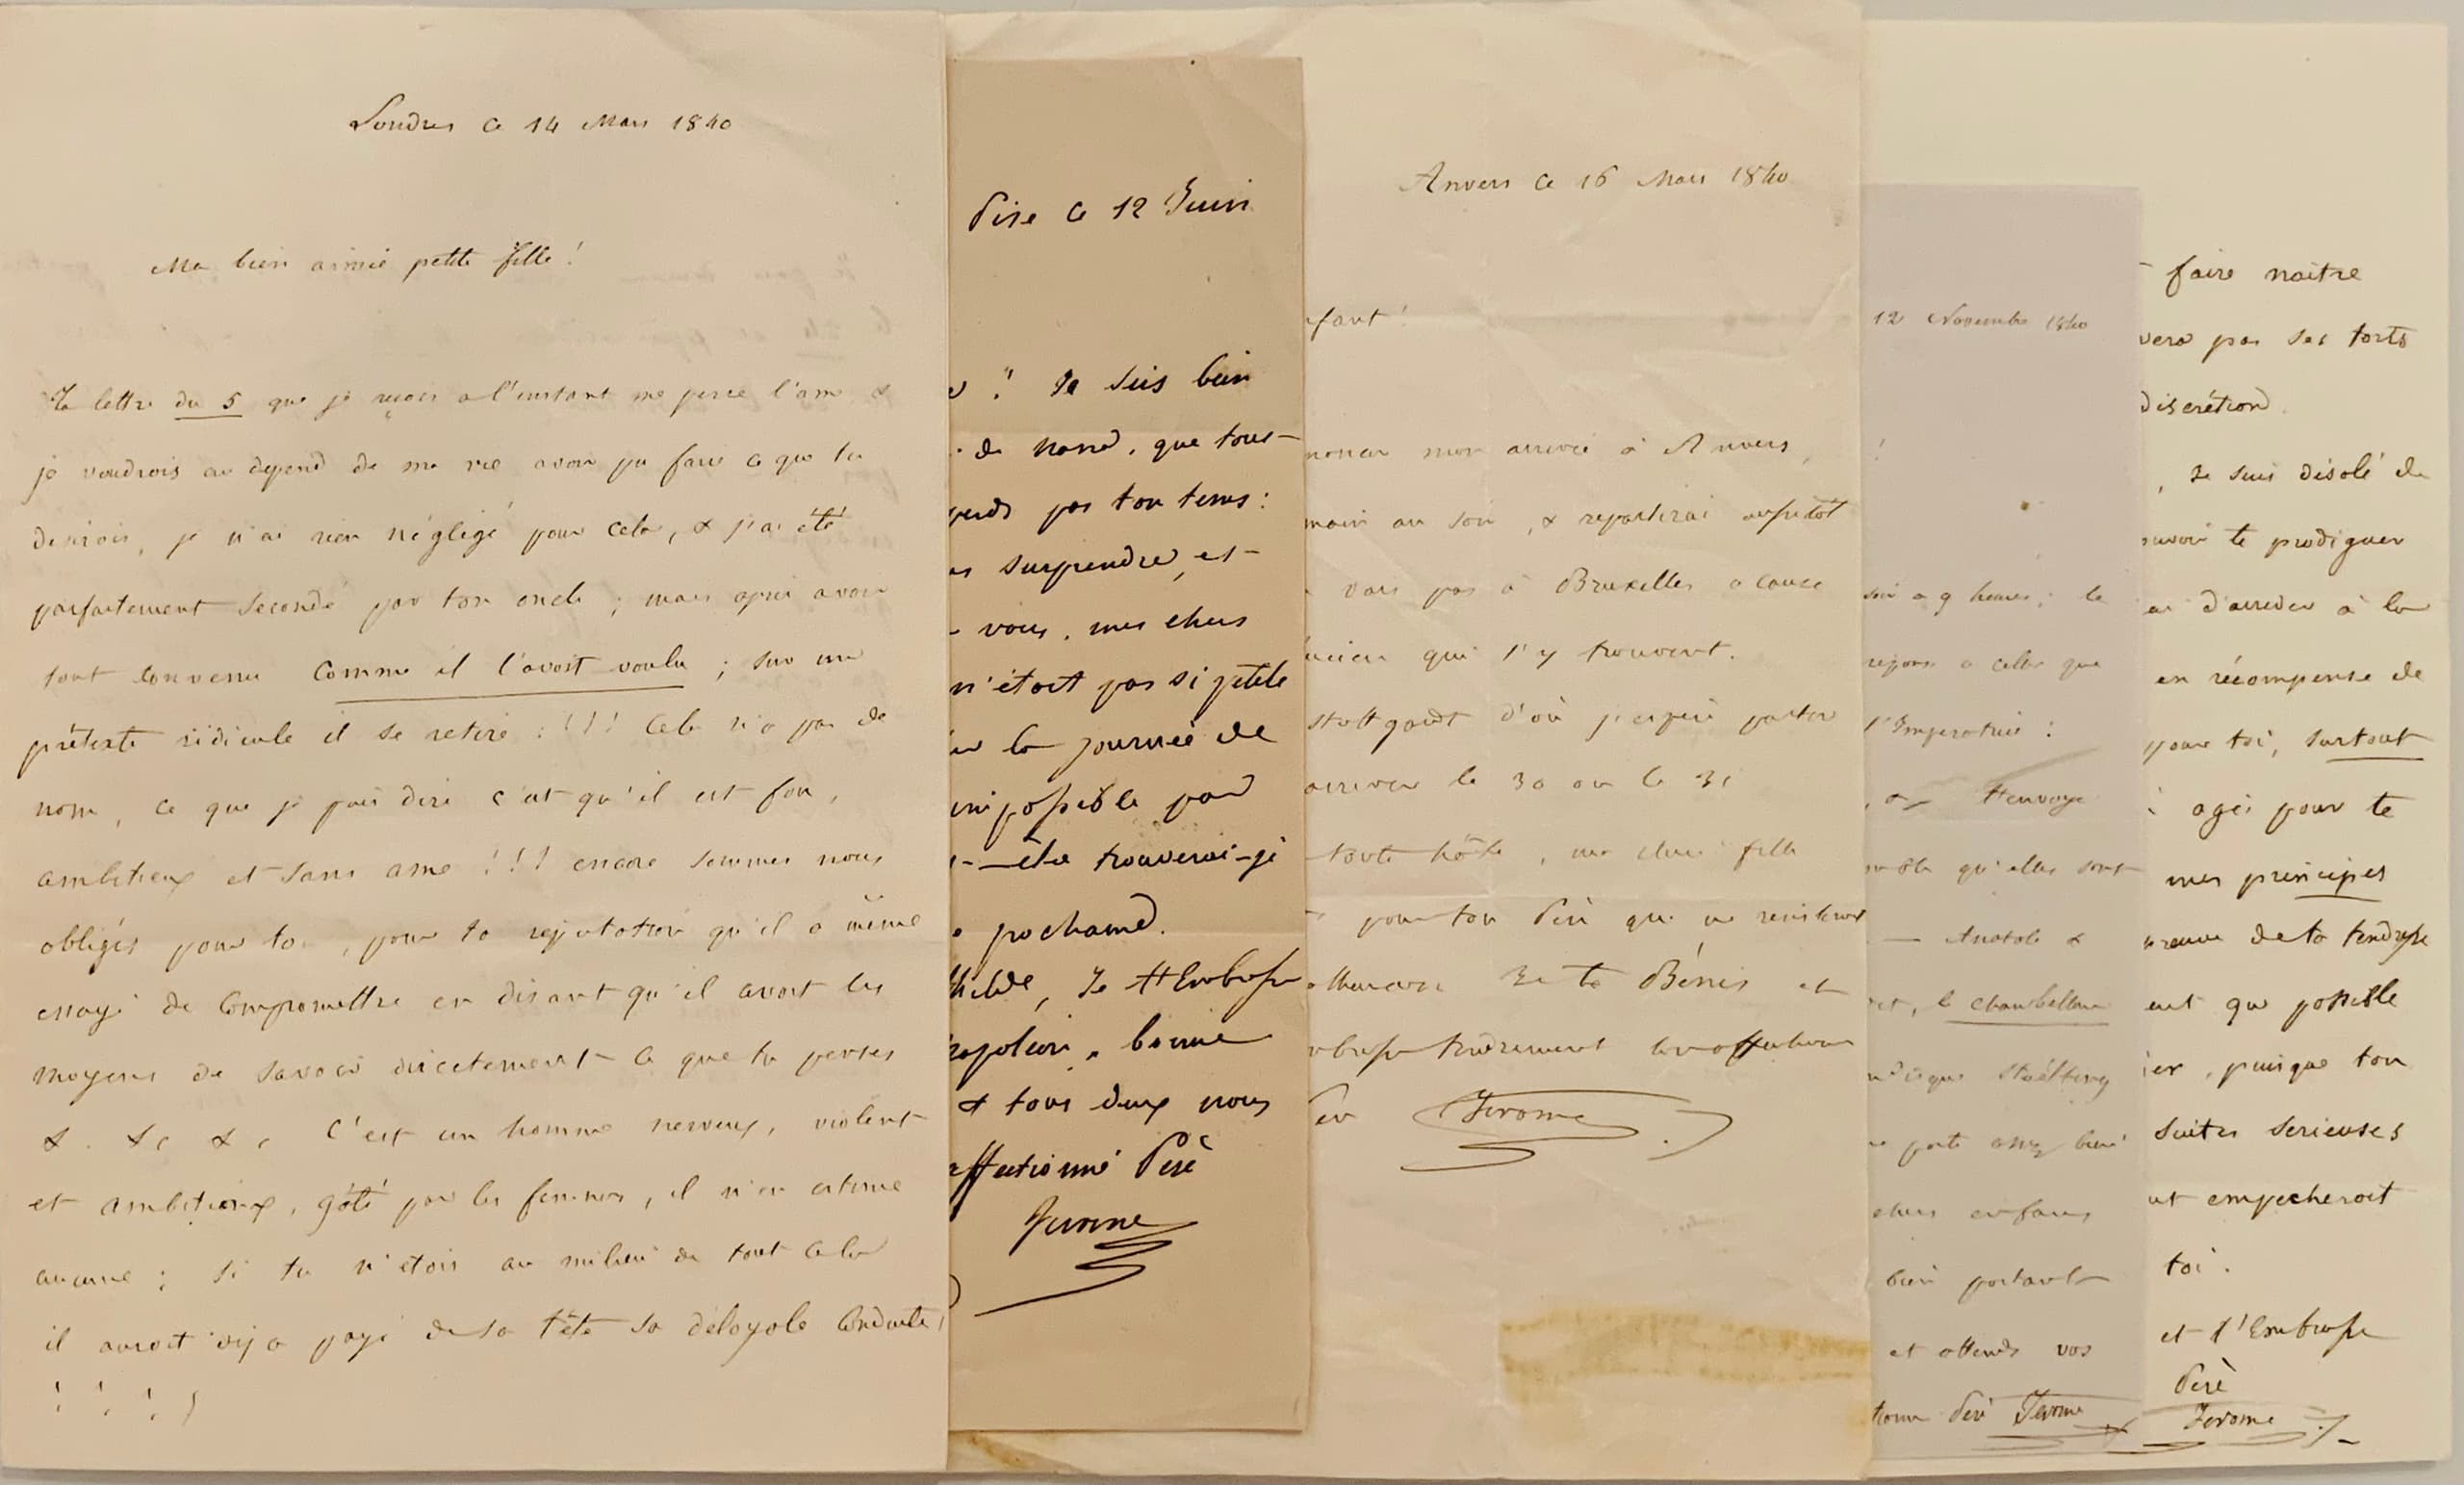 Londres ce 14 Mars 1840
Ma bien aimée petite fille !
Ta lettre du 5 que je reçois a l'instant me perce l'ame &
je voudrois au depend de ma vie avoir pu faire ce que tu
desirois, je n'ai rien négligé pour cela, & j'ai été
parfaitement secondé par ton oncle ; mais après avoir
tout convenu comme il l'avoit voulu ; sur un
prétexte ridicule il se retire : ! ! ! Cela n'a pas de
nom, ce que je puis dire c'est qu'il est fou,
ambitieux et sans ame ! ! ! encore sommes nous
obligés pour toi, pour ta réputation qu'il a même
essayé de compromettre en disant qu'il avoit les
moyens de savoir directement ce que tu penses
&. &c &c C'est un homme nerveux, violent
et ambitieux, gâté par les femmes, il n'en estime
aucune ; si tu n'étois au milieu de tout cela
il auroit déja payé de sa tête sa déloyale conduite,
! ! ! !
Pise ce 12 Juin
! Je suis bien
de nono, que tous-
perds pas ton tems :
surprendre, et
- vous, mes chers
n'étoit pas si petite
la journée de
impossible pour
être trouverai-je
prochaine.
thilde, Je t'Embrasse
napoléon, bonne
& tous deux nous
affectionné Père
Jerome
Anvers ce 16 Mars 1840
fant !
noncer mon arrivée à Anvers,
main au soir, & repartirai aussitôt
vais pas à Bruxelles a cause
Lucien qui s'y trouvent.
Stuttgardt d'où j'espère partir
arriver le 30 ou le 31
toute hâte, ma chère fille
pour ton Père qui ne
Je te Bénis et
brasse tendrement ton affectionné
Père Jerome
12 Novembre 1840
!
soir a 9 heures ; la
réponse a celle que
l'Imperatrice :
t'envoye
qu'elles sont
— Anatole &
le chambellan
Stoelting
porte assez bien
chers enfans
bien portant
et attends vos
tionné Père Jerome
faire naitre
vera pas ses torts
discrétion.
, Je suis désolé de
pouvoir te prodiguer
d'arriver à la
en récompense de
pour toi, surtout
agir pour te
mes principes
preuve de ta tendresse
ent que possible
ier, puisque ton
suites serieuses
ut empecheroit
toi.
et t'Embrasse
Père
Jerome